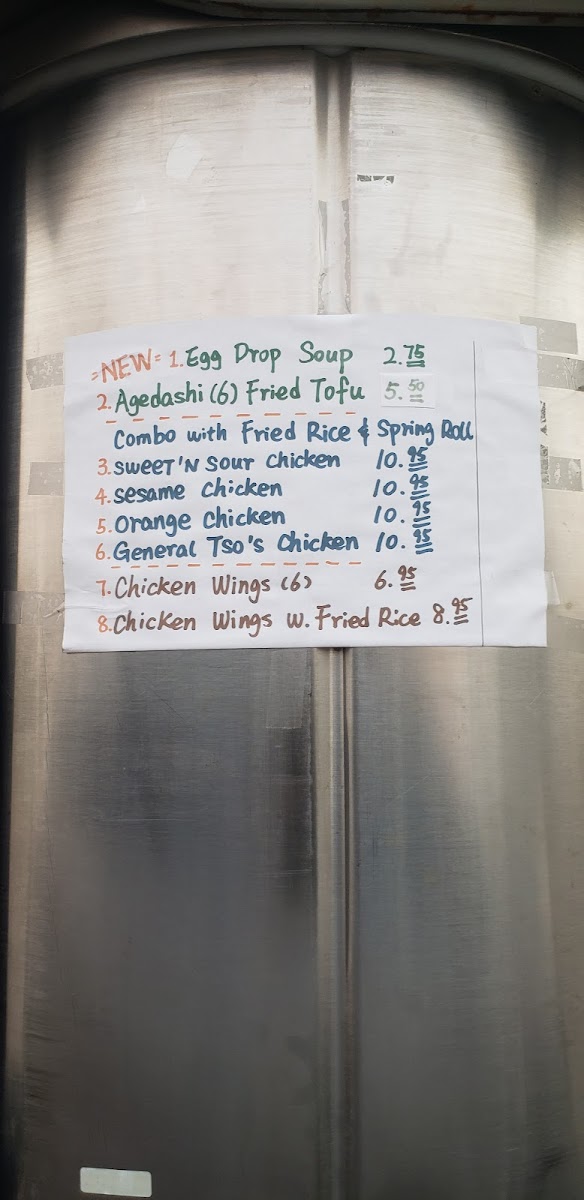 =NEW= 1. Egg Drop Soup 2.75
2. Agedashi (6) Fried Tofu 5.50
Combo with Fried Rice & Spring Roll
3. SWEET 'N SOUR Chicken 10.95
4. Sesame Chicken 10.95
5. Orange Chicken 10.95
6. General Tso's Chicken 10.95
7. Chicken Wings (6) 6.95
8. Chicken Wings w. Fried Rice 8.95